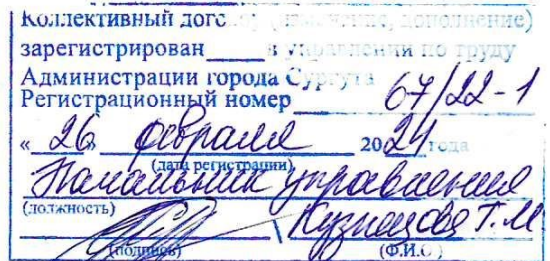 Коллективный договор (изменение, дополнение)
зарегистрирован в управлении по труду
Администрации города Сургута
Регистрационный номер 67/22-1
« 26 » февраля 2024 года
(дата регистрации)
Начальник управления
(должность)
Кузнецова Т.М
(подпись) (Ф.И.О.)